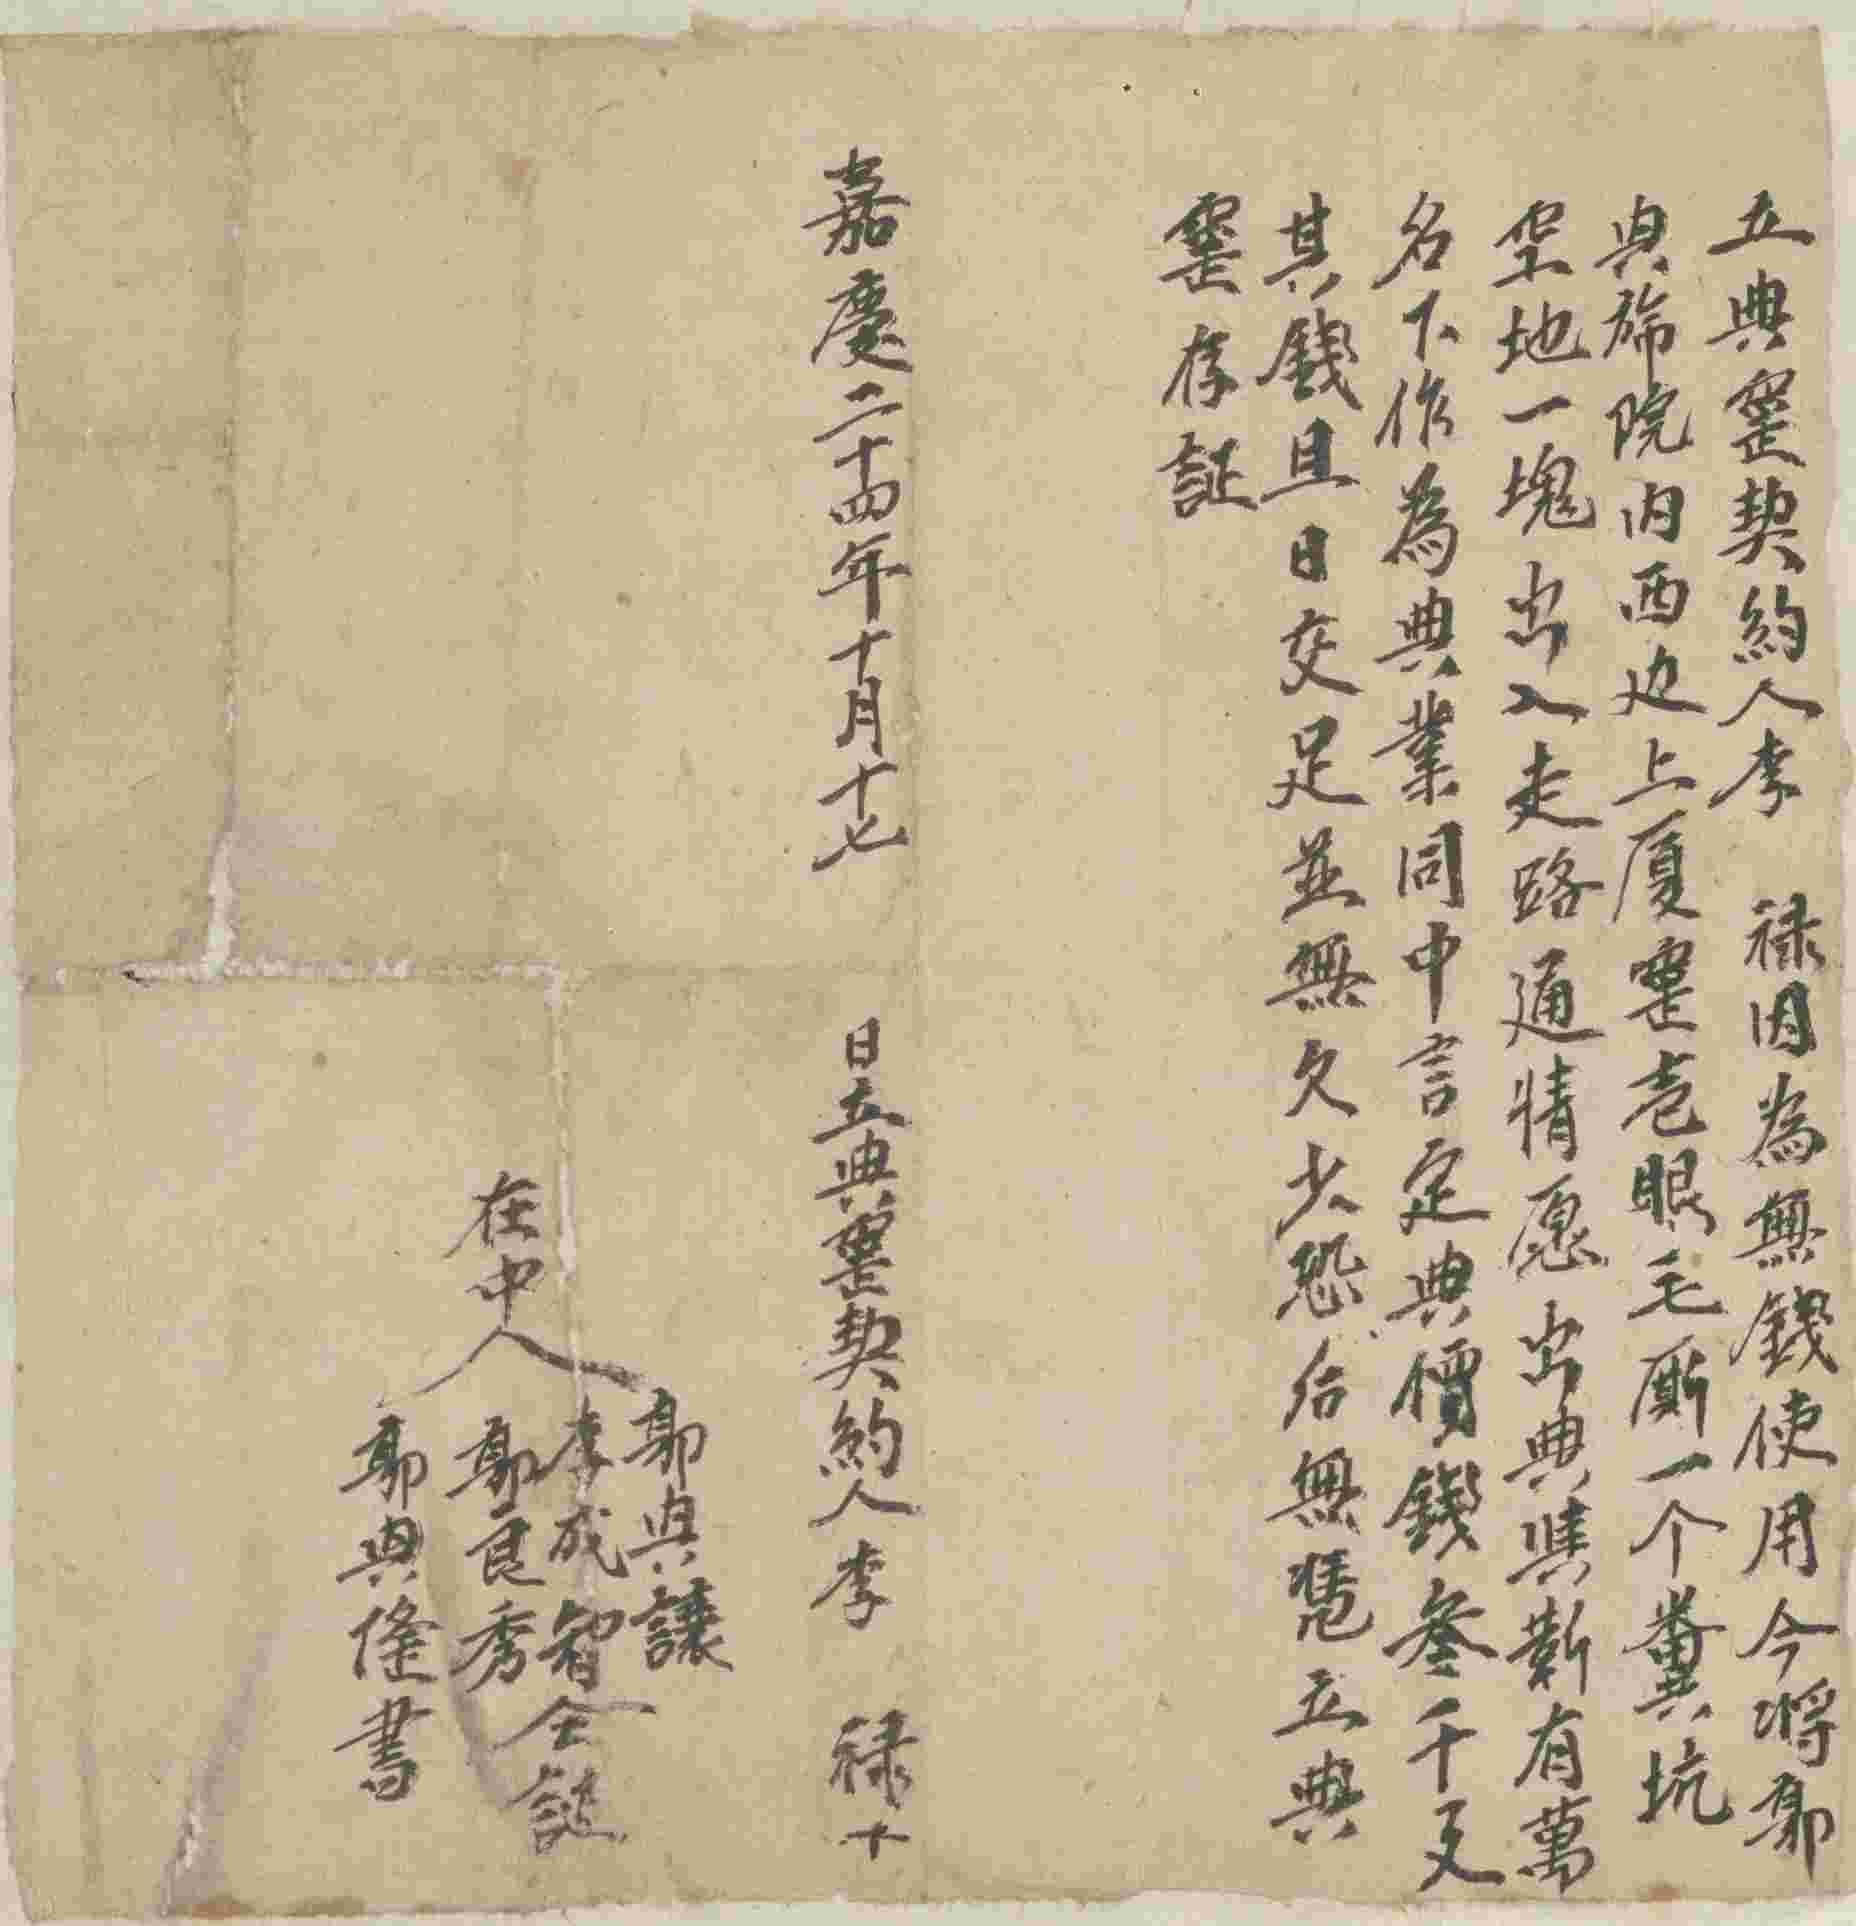 立典窰契約人李　禄因為無錢使用今将郭
典旆院内西边上厦窰壱眼毛厮一个糞坑
空地一塊出入走路通情愿出典與靳有萬
名下作為典業同中言定典價錢叄千文
其錢且日交足並無欠少恐后無憑立典
窰存証
嘉慶二十四年十月十七　日立典窰契約人李　禄十
在中人
郭興讓
李成智
郭良秀
仝証
郭興隆書